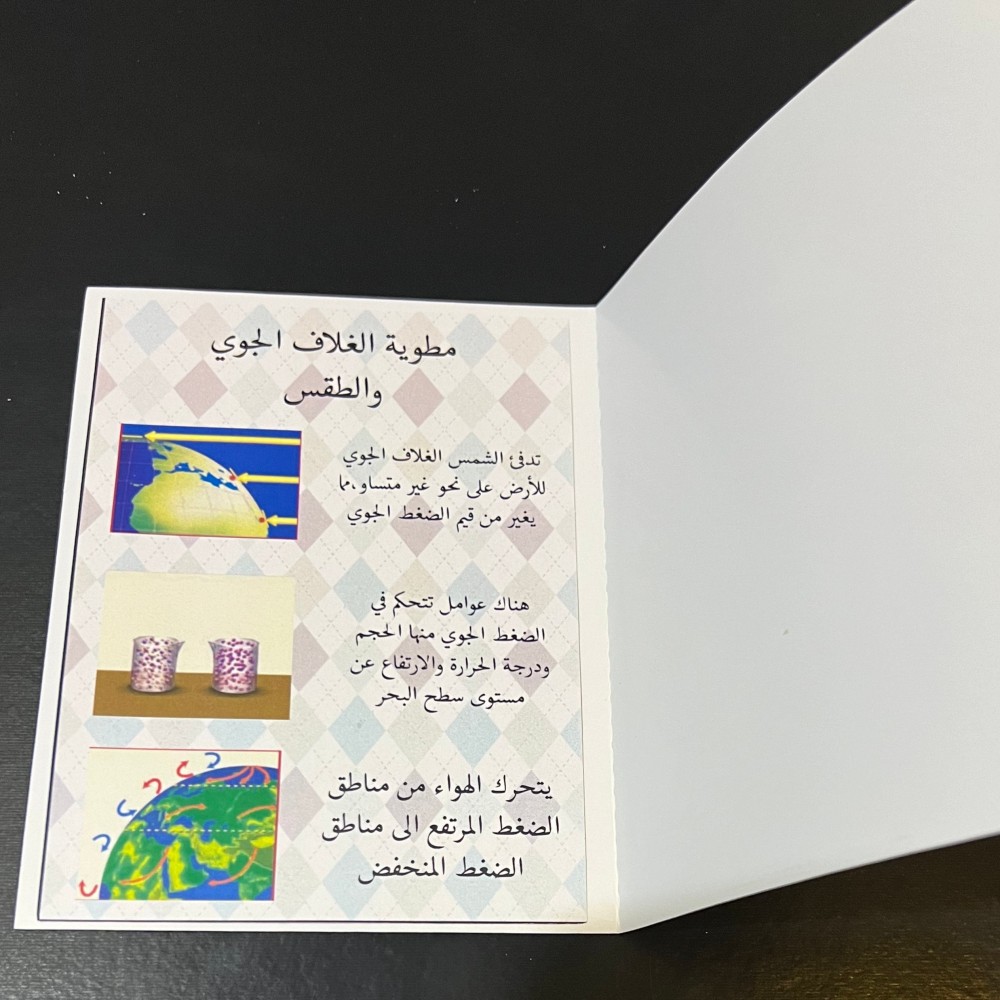 مطوية الغلاف الجوي
والطقس
تدفئ الشمس الغلاف الجوي
للأرض على نحو غير متساو،مما
يغير من قيم الضغط الجوي
هناك عوامل تتحكم في
الضغط الجوي منها الحجم
ودرجة الحرارة والارتفاع عن
مستوى سطح البحر
يتحرك الهواء من مناطق
الضغط المرتفع الى مناطق
الضغط المنخفض